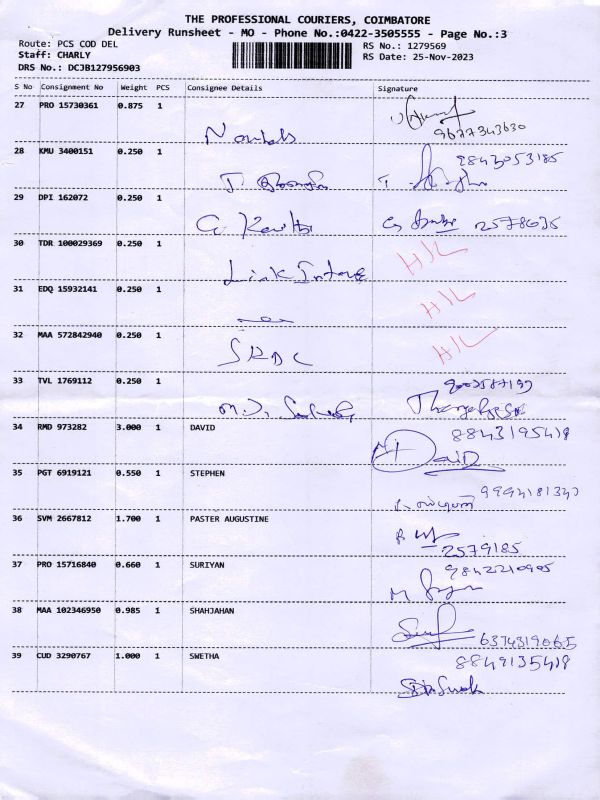 THE PROFESSIONAL COURIERS, COIMBATORE
Delivery Runsheet - MO - Phone No.:0422-3505555 - Page No.:3
Route: PCS COD DEL
Staff: CHARLY
DRS No.: DCJB127956903
RS No.: 1279569
RS Date: 25-Nov-2023
S No Consignment No Weight PCS Consignee Details Signature
27 PRO 15730361 0.875 1
9677343630
28 KMU 3400151 0.250 1
9843053185
29 DPI 162072 0.250 1
2578635
30 TDR 100029369 0.250 1
Link Intime H/L
31 EDQ 15932141 0.250 1
H/L
32 MAA 572842940 0.250 1
SRDC H/L
33 TVL 1769112 0.250 1
34 RMD 973282 3.000 1 DAVID
8843195418
David
35 PGT 6919121 0.550 1 STEPHEN
36 SVM 2667812 1.700 1 PASTER AUGUSTINE
2579185
37 PRO 15716840 0.660 1 SURIYAN
9842210905
38 MAA 102346950 0.985 1 SHAHJAHAN
6374319065
39 CUD 3290767 1.000 1 SWETHA
8849135418